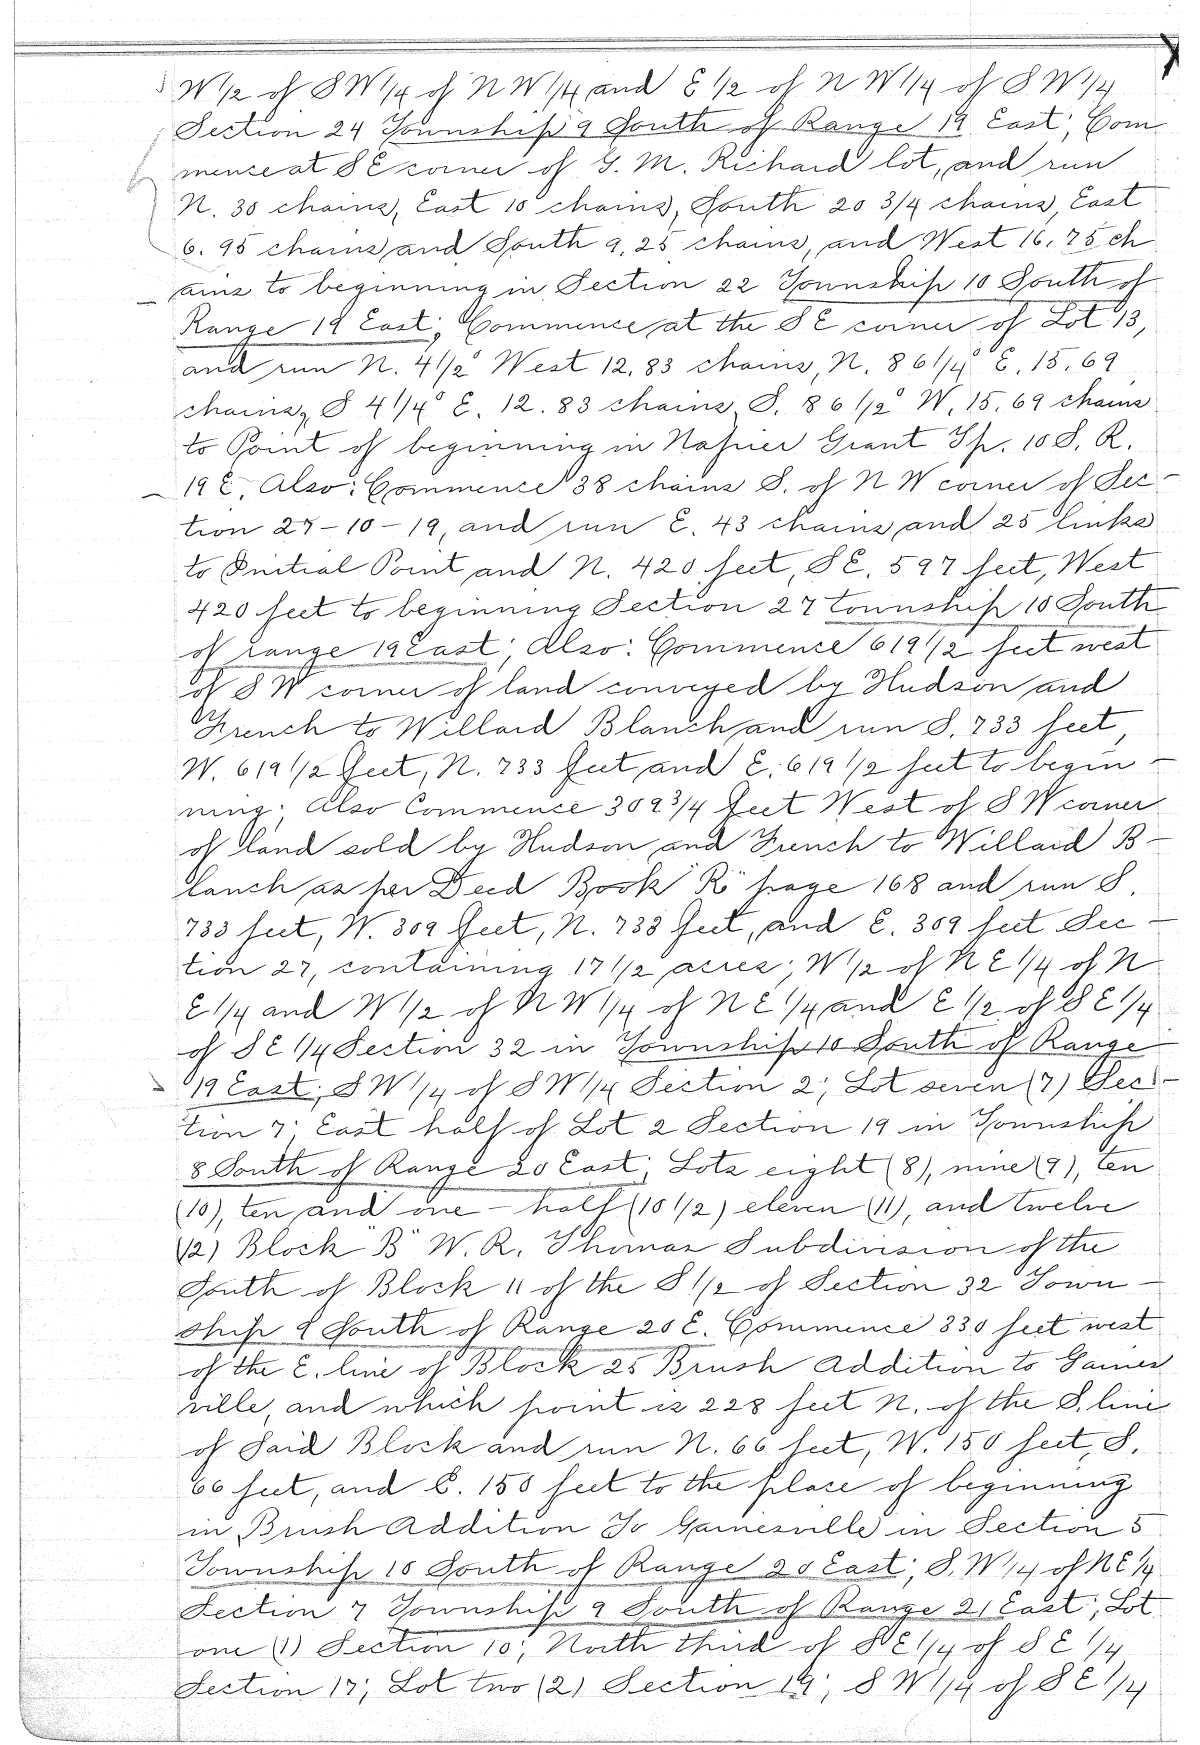 W 1/2 of S W 1/4 of N W 1/4 and E 1/2 of N W 1/4 of S W 1/4
Section 24 Township 9 South of Range 19 East; Com
mence at S E corner of G. M. Richard lot, and run
N. 30 chains, East 10 chains, South 20 3/4 chains, East
6.95 chains and South 9.25 chains, and West 16.75 ch
ains to beginning in Section 22 Township 10 South of
Range 19 East; Commence at the S E corner of Lot 13,
and run N. 4 1/2° West 12.83 chains, N. 86 1/4° E. 15.69
chains, S 4 1/4° E. 12.83 chains, S. 86 1/2° W. 15.69 chains
to Point of beginning in Napier Grant Tp. 10 S. R.
19 E. Also: Commence 38 chains S. of N W corner of Sec-
tion 27-10-19, and run E. 43 chains and 25 links
to Initial Point and N. 420 feet, S E. 597 feet, West
420 feet to beginning Section 27 township 10 South
of range 19 East; Also: Commence 619 1/2 feet west
of S W corner of land conveyed by Hudson and
French to Willard Blanch and run S. 733 feet,
W. 619 1/2 feet, N. 733 feet and E. 619 1/2 feet to begin-
ning; Also Commence 309 3/4 feet West of S W corner
of land sold by Hudson and French to Willard B-
lanch as per Deed Book "R" page 168 and run S.
733 feet, W. 309 feet, N. 733 feet, and E. 309 feet Sec-
tion 27, containing 17 1/2 acres; W 1/2 of N E 1/4 of N
E 1/4 and W 1/2 of N W 1/4 of N E 1/4 and E 1/2 of S E 1/4
of S E 1/4 Section 32 in Township 10 South of Range
19 East; S W 1/4 of S W 1/4 Section 2; Lot seven (7) Sec-
tion 7; East half of Lot 2 Section 19 in Township
8 South of Range 20 East; Lots eight (8), nine (9), ten
(10), ten and one-half (10 1/2) eleven (11), and twelve
(12) Block "B" W. R. Thomas Subdivision of the
South of Block 11 of the S 1/2 of Section 32 Town-
ship 9 South of Range 20 E. Commence 330 feet west
of the E. line of Block 25 Brush Addition to Gaines
ville, and which point is 228 feet N. of the S. line
of Said Block and run N. 66 feet, W. 150 feet, S.
66 feet, and E. 150 feet to the place of beginning
in Brush Addition To Gainesville in Section 5
Township 10 South of Range 20 East; S. W 1/4 of N E 1/4
Section 7 Township 9 South of Range 21 East; Lot
one (1) Section 10; North third of S E 1/4 of S E 1/4
Section 17; Lot two (2) Section 19; S W 1/4 of S E 1/4